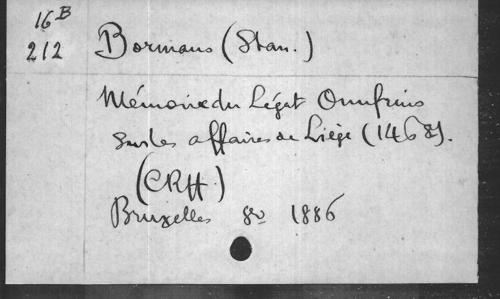 16B
212 Bormans (Stan.)
Mémoire du Légat Onufrius
sur les affaires de Liège (1468).
(CRH.)
Bruxelles 8o 1886